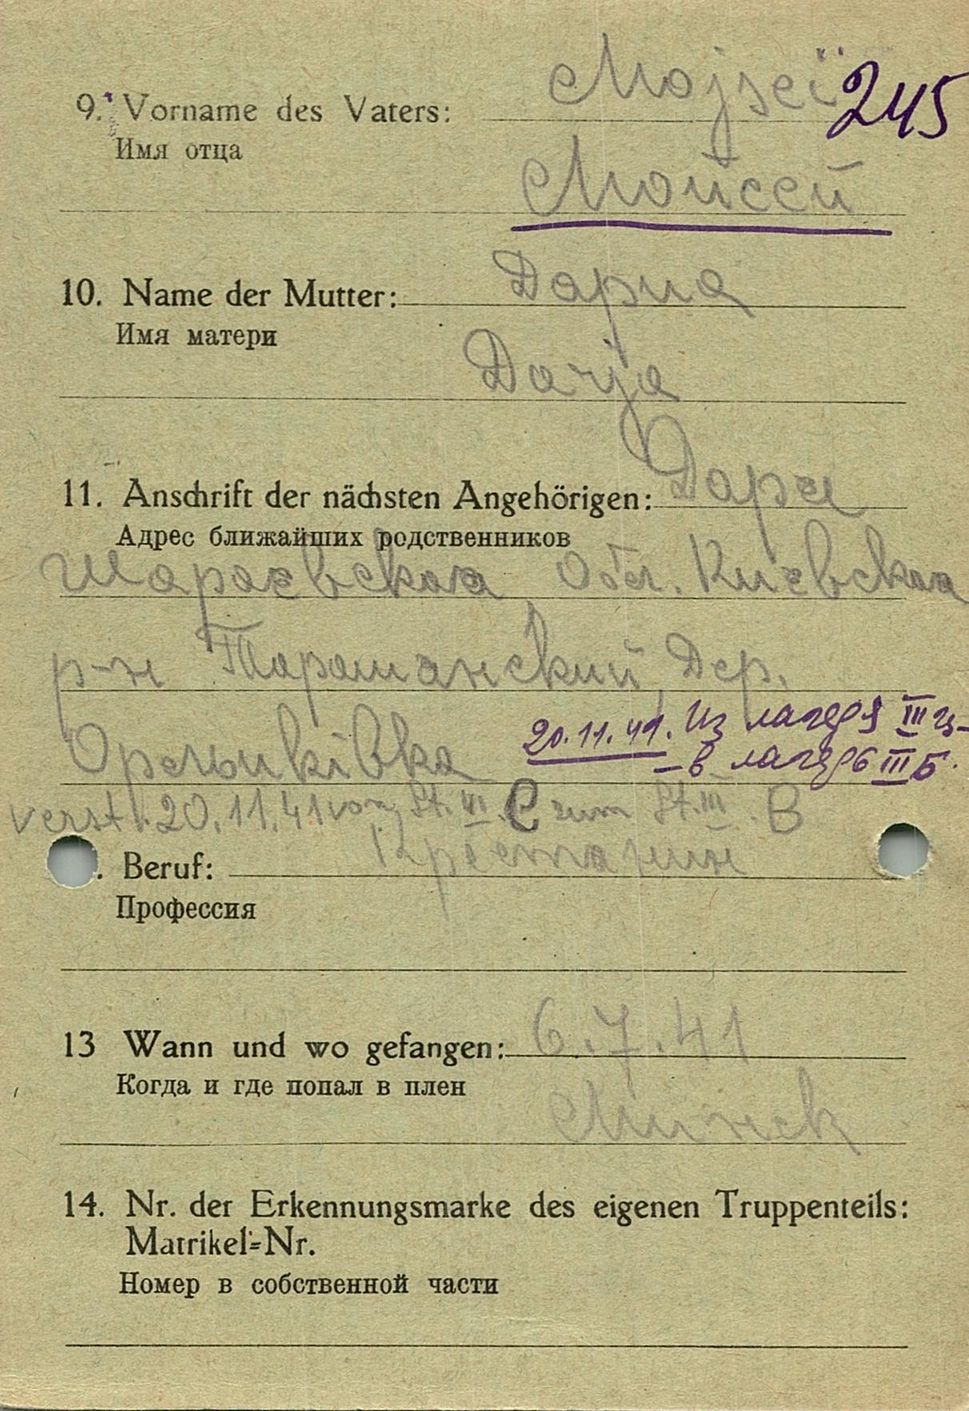 Mojseï 245
9. Vorname des Vaters:
Имя отца
Моисей
10. Name der Mutter: Дариа
Имя матери
Darja
11. Anschrift der nächsten Angehörigen: Даря
Адрес ближайших родственников
Обл. Киевская
р-н Таращанский Дер.
20.11.41. Из лагеря III Ц-
-в лагерь III Б.
verst. 20.11.41 von St. III. C zum St. III. B
Крестянин
. Beruf:
Профессия
13 Wann und wo gefangen: 6.7.41
Когда и где попал в плен
Минск
14. Nr. der Erkennungsmarke des eigenen Truppenteils:
Matrikel-Nr.
Номер в собственной части